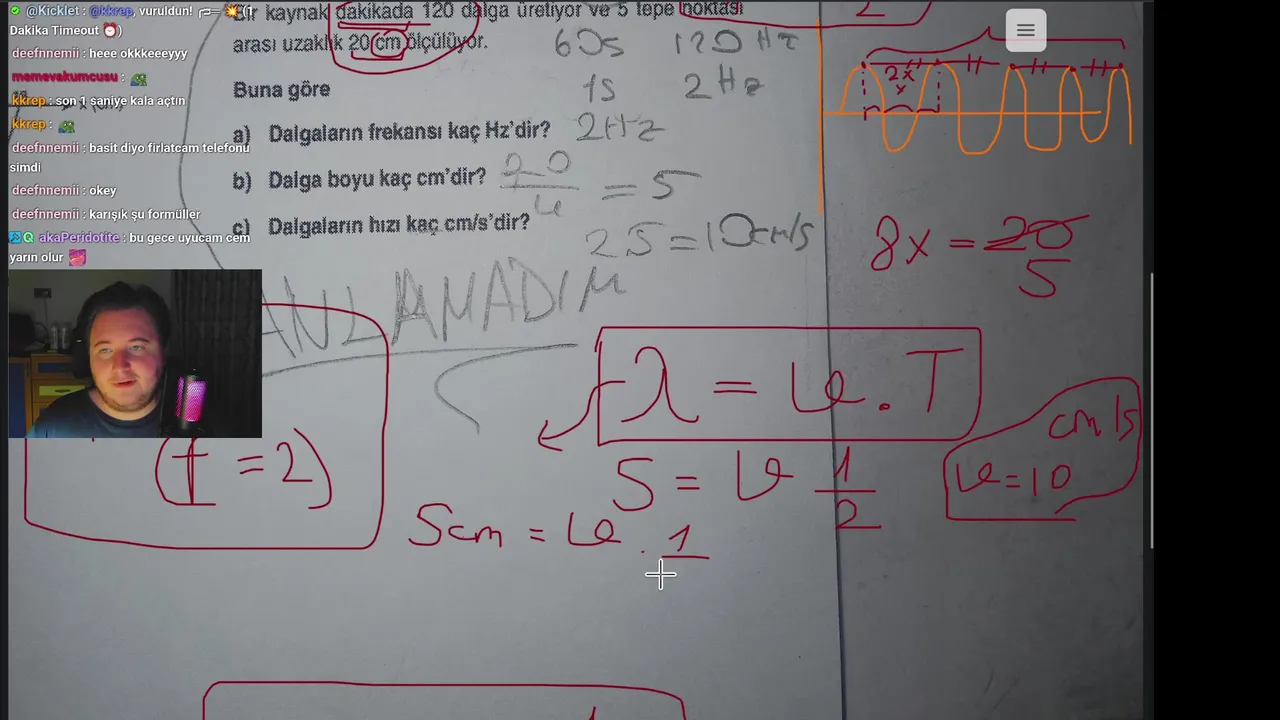 @Kicklet : @kkrep, vuruldun!
Dakika Timeout
deefnnemii : heee okkkeeeyyy
memevakumcusu :
kkrep : son 1 saniye kala açtın
kkrep :
deefnnemii : basit diyo firlatcam telefonu
simdi
deefnnemii : okey
deefnnemii : karışık şu formüller
akaPeridotite : bu gece uyucam cem
yarın olur
Bir kaynak dakikada 120 dalga üretiyor ve 5 tepe noktası
arası uzaklık 20 cm ölçülüyor.
60s 120 Hz
Buna göre
1s 2 Hz
a) Dalgaların frekansı kaç Hz'dir? 2Hz
b) Dalga boyu kaç cm'dir? 20/4 = 5
c) Dalgaların hızı kaç cm/s'dir?
2 5 = 10cm/s
ANLAMADIM
2x
x
8x = 20
5
λ = v . T
5 = v 1/2
cm/s
v = 10
(f = 2)
5cm = v . 1